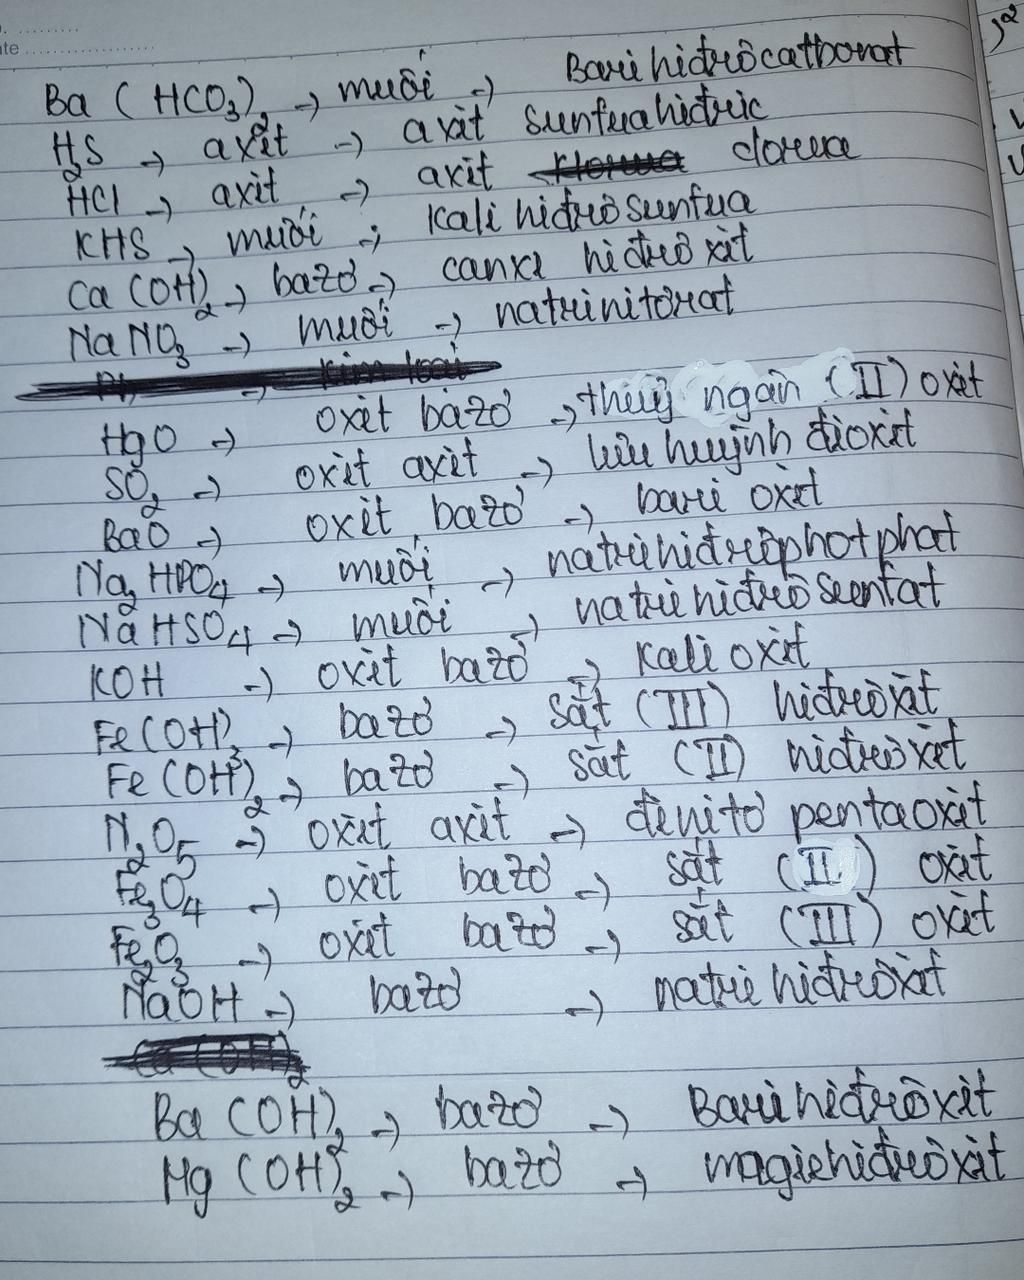 ate ....................
Ba(HCO₃)₂ → muối → Bari hiđrôcacbonat
H₂S → axit → axit sunfuahiđric
HCl → axit → axit clorua
KHS → muối → Kali hiđrô sunfua
Ca(OH)₂ → bazơ → canxi hiđrô xit
NaNO₃ → muối → natri nitơrat
kim loại
HgO → oxit bazơ → thuỷ ngân (II) oxit
SO₂ → oxit axit → lưu huỳnh đioxit
BaO → oxit bazơ → bari oxit
Na₂HPO₄ → muối → natri hiđrôphotphat
NaHSO₄ → muối → natri hiđrô sunfat
KOH → oxit bazơ → Kali oxit
Fe(OH)₃ → bazơ → sắt (III) hiđrôxit
Fe(OH)₂ → bazơ → sắt (II) hiđrôxit
N₂O₅ → oxit axit → đinitơ pentaoxit
Fe₃O₄ → oxit bazơ → sắt (II) oxit
Fe₂O₃ → oxit bazơ → sắt (III) oxit
NaOH → bazơ → natri hiđrôxit
Ca(OH)₂
Ba(OH)₂ → bazơ → Bari hiđrôxit
Mg(OH)₂ → bazơ → magiehiđrôxit